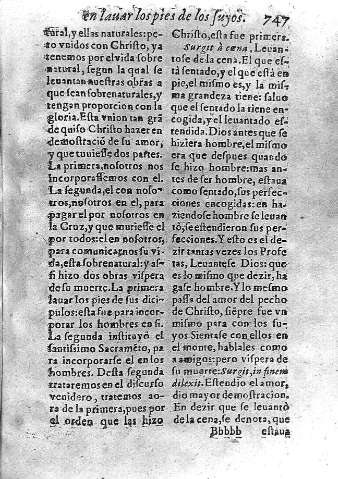 en lauar los pies de los suyos. 747
tural, y ellas naturales: pe-
ro vnidos con Christo, ya
tenemos por el vida sobre
natural, segun la qual se
leuantan nuestras obras a
que sean sobrenaturales, y
tengan proporcion con la
gloria. Esta vnion tan grã
de quiso Christo hazer en
demostració de su amor,
y que tuuiesse dos partes.
La primera, nosotros nos
incorporassemos con el.
La segunda, el con noso-
tros, nosotros en el, para
pagar el por nosotros en
la Cruz, y que muriesse el
por todos: el en nosotros,
para comunicarnos su vi-
da, esta sobrenatural: y as-
si hizo dos obras vispera
de su muerte. La primera
lauar los pies de sus dici-
pulos: esta fue para incor-
porar los hombres en si.
La segunda instituyò el
santissimo Sacramẽto, pa
ra incorporarse el en los
hombres. Desta segunda
trataremos en el discurso
venidero, tratemos aora
de la primera, pues por
el orden que las hizo
Christo, esta fue primera.
Surgit à cena, Leuan-
tose de la cena. El que es-
tà sentado, y el que està en
pie, el mismo es, y la mis-
ma grandeza tiene: saluo
que el sentado la tiene en-
cogida, y el leuantado es-
tendida. Dios antes que se
hiziera hombre, el mismo
era que despues quando
se hizo hombre: mas an-
tes de ser hombre, estaua
como sentado, sus perfec-
ciones encogidas: en ha-
ziendose hombre se leuan
tò, se estendieron sus per-
fecciones. Y esto es el de-
zir tantas vezes los Profe
tas, Leuantese Dios: que
es lo mismo que dezir, ha
gase hombre. Y lo mesmo
passa del amor del pecho
de Christo, siẽpre fue vn
mismo para con los su-
yos Sientase con ellos en
el monte, hablales como
a amigos: pero vispera de
su muerte: Surgit, in finem
dilexit. Estendio el amor,
dio mayor demostracion.
En dezir que se leuantò
de la cena, se denota, que
Bbbbb estaua